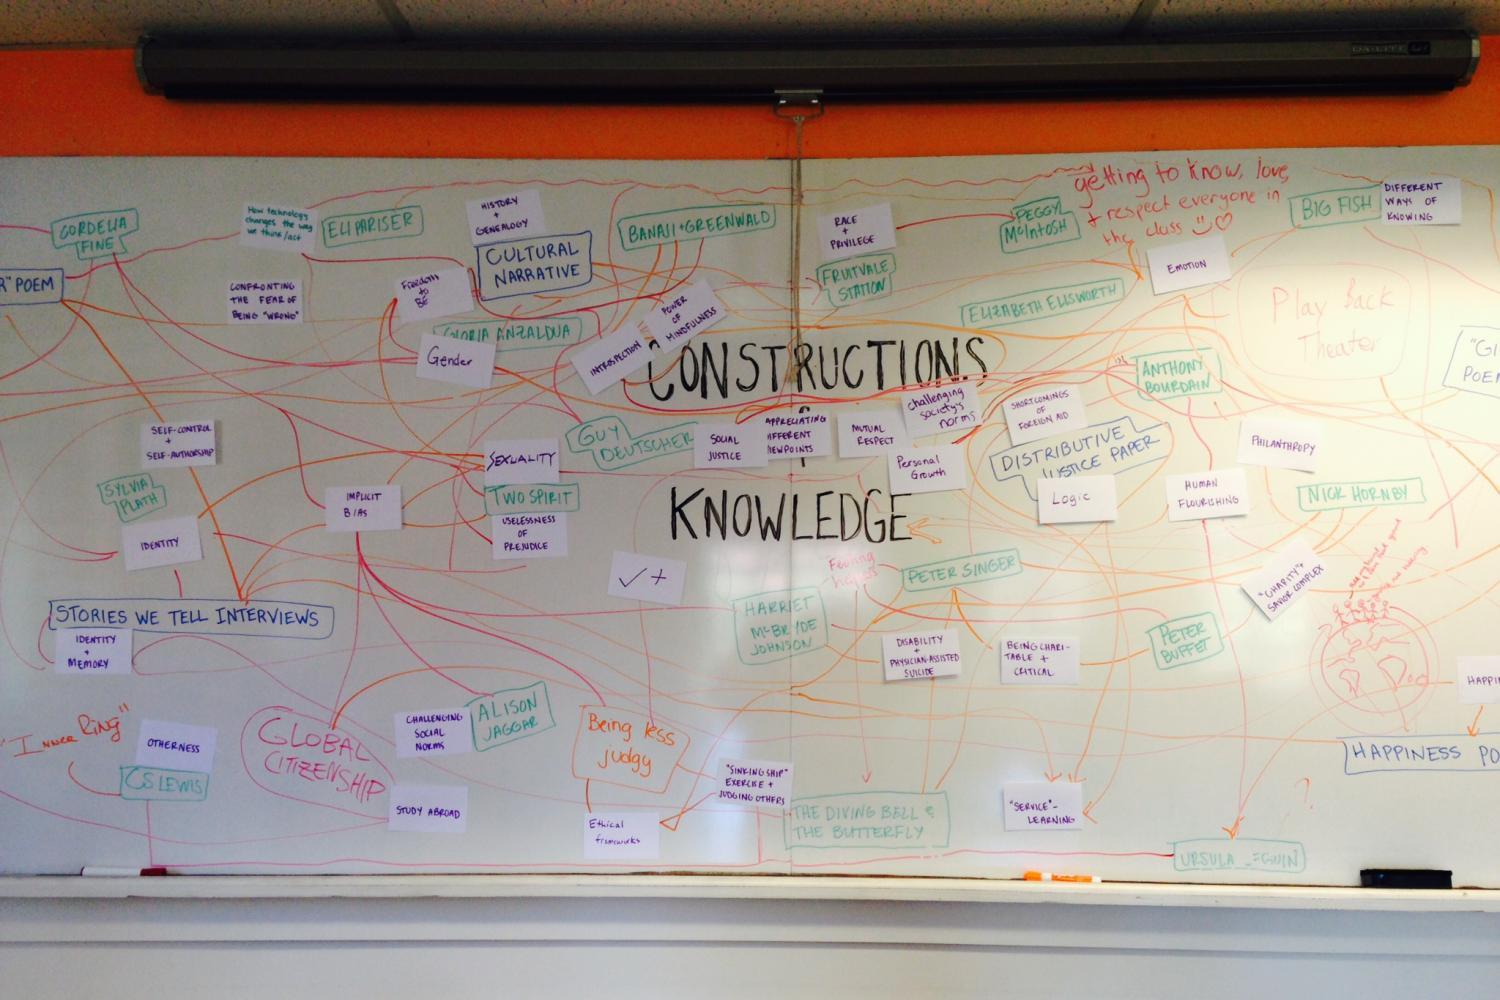 DA-LITE
CORDELIA
FINE
How technology
changes the way
we think/act
ELI PARISER
HISTORY
+
GENEALOGY
CULTURAL
NARRATIVE
BANAJI + GREENWALD
RACE
+
PRIVILEGE
FRUITVALE
STATION
PEGGY
McINTOSH
getting to know, love,
+ respect everyone in
the class
BIG FISH
DIFFERENT
WAYS OF
KNOWING
EMOTION
R" POEM
CONFRONTING
THE FEAR OF
BEING "WRONG"
Freedom
to
BE
GLORIA ANZALDUA
Gender
INTROSPECTION
POWER
OF
MINDFULNESS
ELIZABETH ELLSWORTH
Play Back
Theater
CONSTRUCTIONS
KNOWLEDGE
ANTHONY
BOURDAIN
"GI
POE
SELF-CONTROL
+
SELF-AUTHORSHIP
SYLVIA
PLATH
IDENTITY
IMPLICIT
BIAS
SEXUALITY
TWO SPIRIT
USELESSNESS
OF
PREJUDICE
GUY
DEUTSCHER
SOCIAL
JUSTICE
APPRECIATING
IFFERENT
IEWPOINTS
MUTUAL
RESPECT
challenging
society's
norms
Personal
Growth
SHORTCOMINGS
OF
FOREIGN AID
DISTRIBUTIVE
JUSTICE PAPER
Logic
HUMAN
FLOURISHING
PHILANTHROPY
NICK HORNBY
✓+
STORIES WE TELL INTERVIEWS
IDENTITY
+
MEMORY
HARRIET
McBRYDE
JOHNSON
PETER SINGER
DISABILITY
+
PHYSICIAN-ASSISTED
SUICIDE
BEING CHARI-
TABLE +
CRITICAL
PETER
BUFFET
"CHARITY" +
SAVIOR COMPLEX
HAPPI
HAPPINESS PO
"Inner Ring"
OTHERNESS
CS LEWIS
GLOBAL
CITIZENSHIP
CHALLENGING
SOCIAL
NORMS
ALISON
JAGGAR
STUDY ABROAD
Being less
judgy
Ethical
frameworks
"SINKING SHIP"
EXERCISE +
JUDGING OTHERS
THE DIVING BELL &
THE BUTTERFLY
"SERVICE"-
LEARNING
?
URSULA LEGUIN